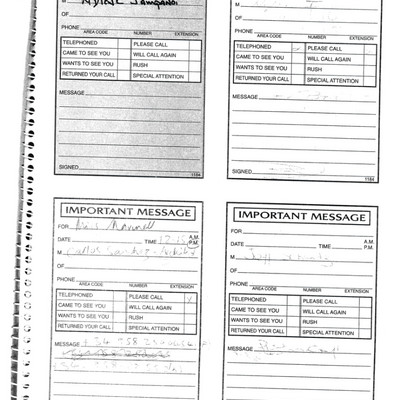 M
OF
PHONE
AREA CODE NUMBER EXTENSION
TELEPHONED PLEASE CALL
CAME TO SEE YOU WILL CALL AGAIN
WANTS TO SEE YOU RUSH
RETURNED YOUR CALL SPECIAL ATTENTION
MESSAGE
SIGNED
1184
M
OF
PHONE
AREA CODE NUMBER EXTENSION
TELEPHONED PLEASE CALL
CAME TO SEE YOU WILL CALL AGAIN
WANTS TO SEE YOU RUSH
RETURNED YOUR CALL SPECIAL ATTENTION
MESSAGE
SIGNED
1184
IMPORTANT MESSAGE
FOR
DATE TIME A.M.
P.M.
M Carlos
OF
PHONE
AREA CODE NUMBER EXTENSION
TELEPHONED PLEASE CALL
CAME TO SEE YOU WILL CALL AGAIN
WANTS TO SEE YOU RUSH
RETURNED YOUR CALL SPECIAL ATTENTION
MESSAGE
IMPORTANT MESSAGE
FOR
DATE TIME A.M.
P.M.
M Jeff
OF
PHONE
AREA CODE NUMBER EXTENSION
TELEPHONED PLEASE CALL
CAME TO SEE YOU WILL CALL AGAIN
WANTS TO SEE YOU RUSH
RETURNED YOUR CALL SPECIAL ATTENTION
MESSAGE